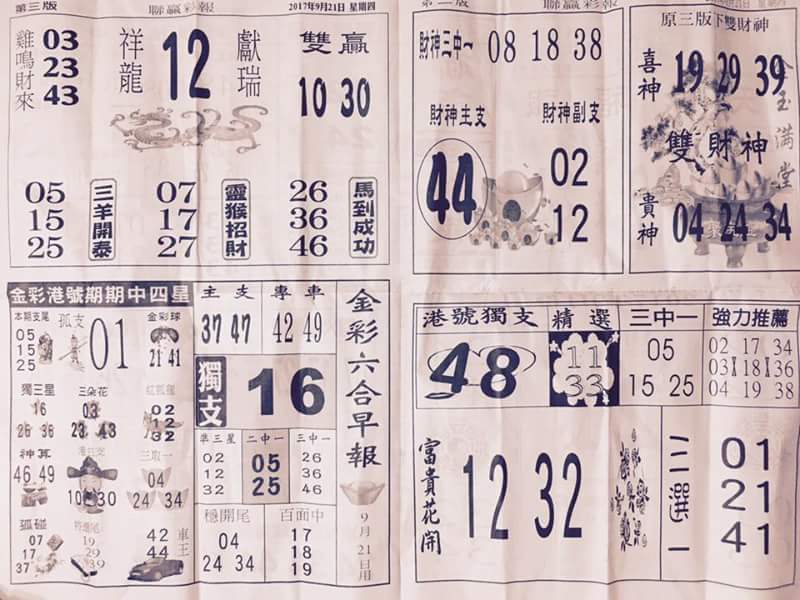 第三版 聯贏彩報 2017年9月21日 星期四
雞鳴財來
03
23
43
祥龍
12
獻瑞
雙贏
10 30
05
15
25
三羊開泰
07
17
27
靈猴招財
26
36
46
馬到成功
聯贏彩報
財神三中一 08 18 38
財神主支
44
財神副支
02
12
原三版下雙財神
喜神
19 29 39
雙財神
貴神
04 24 34
金玉滿堂
金彩港號期期中四星
本期支尾
05
15
25
孤支
01
金彩球
21 41
獨三星
16
26 36
三朵花
03
23 43
02
12
32
神算
46 49
10 30
三取一
04
24 34
孤碰
07
17
37
19
29
39
42
44
車王
主支
37 47
專車
42 49
獨支
16
準三星
02
12
32
二中一
05
25
三中一
26
36
46
穩開尾
04
24 34
百面中
17
18
19
金彩六合早報
9月21日用
港號獨支
48
精選
11
33
三中一
05
15 25
強力推薦
02 17 34
03 18 36
04 19 38
富貴花開
12 32
三選一
01
21
41